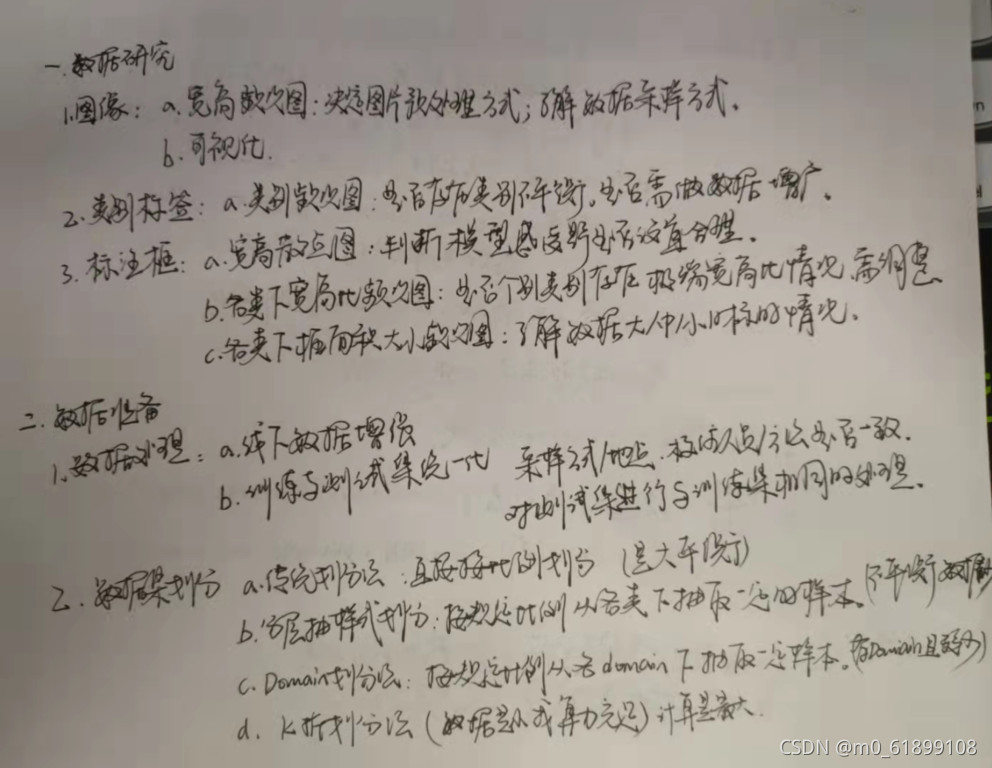 一.数据研究
1.图像：a.宽高频次图：决定图片预处理方式；了解数据采样方式。
b.可视化.
2.类别标签：a.类别频次图：是否存在类别不平衡。是否需做数据增广。
3.标注框：a.宽高散点图：判断模型感受野是否设置合理。
b.各类下宽高比频次图：是否个别类别存在极端宽高比情况，需调整
c.各类下框面积大小频次图：了解数据大中小目标的情况。
二.数据准备
1.数据处理：a.线下数据增强
b.训练与测试集统一化 采样方式/地点、标注人员/方法是否一致.
对测试集进行与训练集相同的处理。
2.数据集划分 a.传统划分法：直接按比例划分（量大平衡）
b.分层抽样式划分：按规定比例从各类下抽取一定的样本。（不平衡数据
c.Domain划分法：按规定比例从各domain下抽取一定样本。（有Domain且
d.K折划分法（数据量小或算力充足）计算量最大.
CSDN @m0_61899108